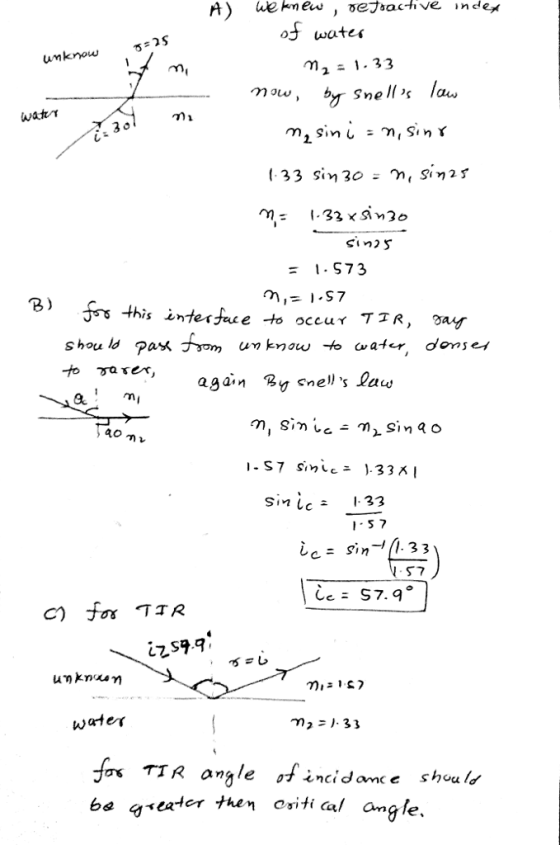 A) We knew, refractive index
of water
n₂ = 1.33
now, by snell's law
n₂ sin i = n₁ sin r
1.33 sin 30 = n₁ sin 25
n₁ = 1.33 x sin 30
sin 25
= 1.573
n₁ = 1.57
unknow
r = 25
n₁
water
i = 30
n₂
B) for this interface to occur TIR, ray
should pass from unknow to water, denser
to rarer,
again By snell's law
n₁
90 n₂
n₁ sin ic = n₂ sin 90
1.57 sin ic = 1.33 x 1
sin ic = 1.33
1.57
ic = sin⁻¹ (1.33
1.57)
ic = 57.9°
C) for TIR
r = i
unknown
n₁ = 1.57
water
n₂ = 1.33
for TIR angle of incidance should
be greater then critical angle.